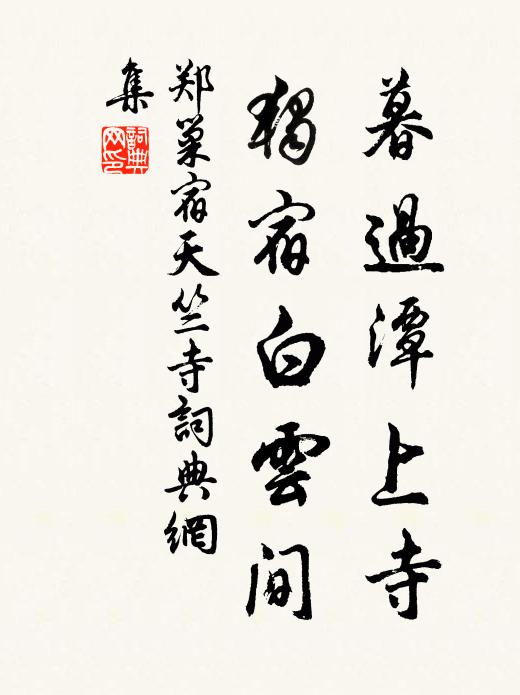 暮過潭上寺
獨宿白雲間
郑巢宿天竺寺詞典網
集
詞典
网印